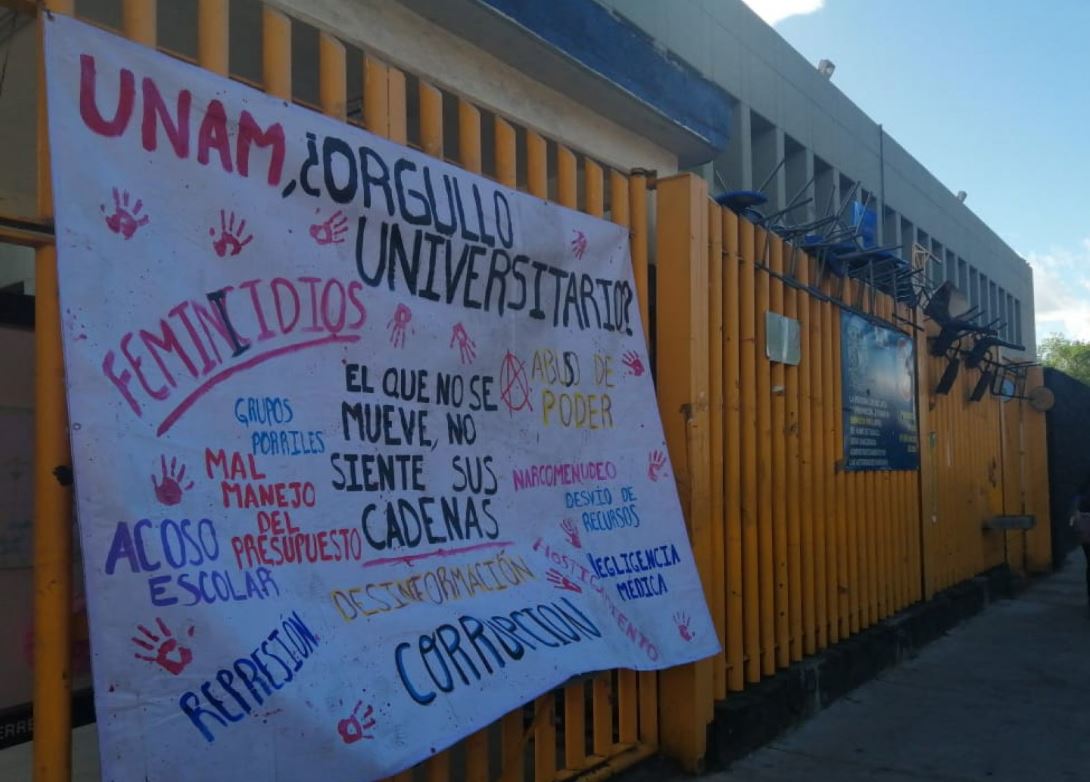 UNAM, ¿ORGULLO
UNIVERSITARIO?
FEMINICIDIOS
GRUPOS
PORRILES
EL QUE NO SE
MUEVE, NO
SIENTE SUS
CADENAS
ABUSO DE
PODER
MAL
MANEJO
DEL
PRESUPUESTO
NARCOMENUDEO
DESVÍO DE
RECURSOS
ACOSO
ESCOLAR
DESINFORMACIÓN
HOSTIGAMIENTO
NEGLIGENCIA
MEDICA
REPRESIÓN
CORRUPCION